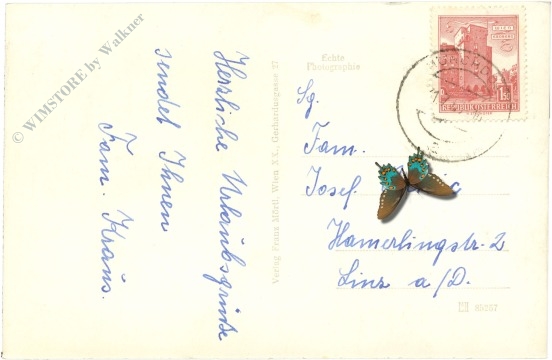 © WIMSTORE by Walkner
Herzliche Urlaubsgrüße
sendet Ihnen
Fam. Kraus.
Verlag Franz Mörtl, Wien XX., Gerhardusgasse 27
Echte
Photographie
WIEN
1.50
REPUBLIK ÖSTERREICH
Sg.
Fam.
Josef
Hamerlingstr. 2
Linz a/D.